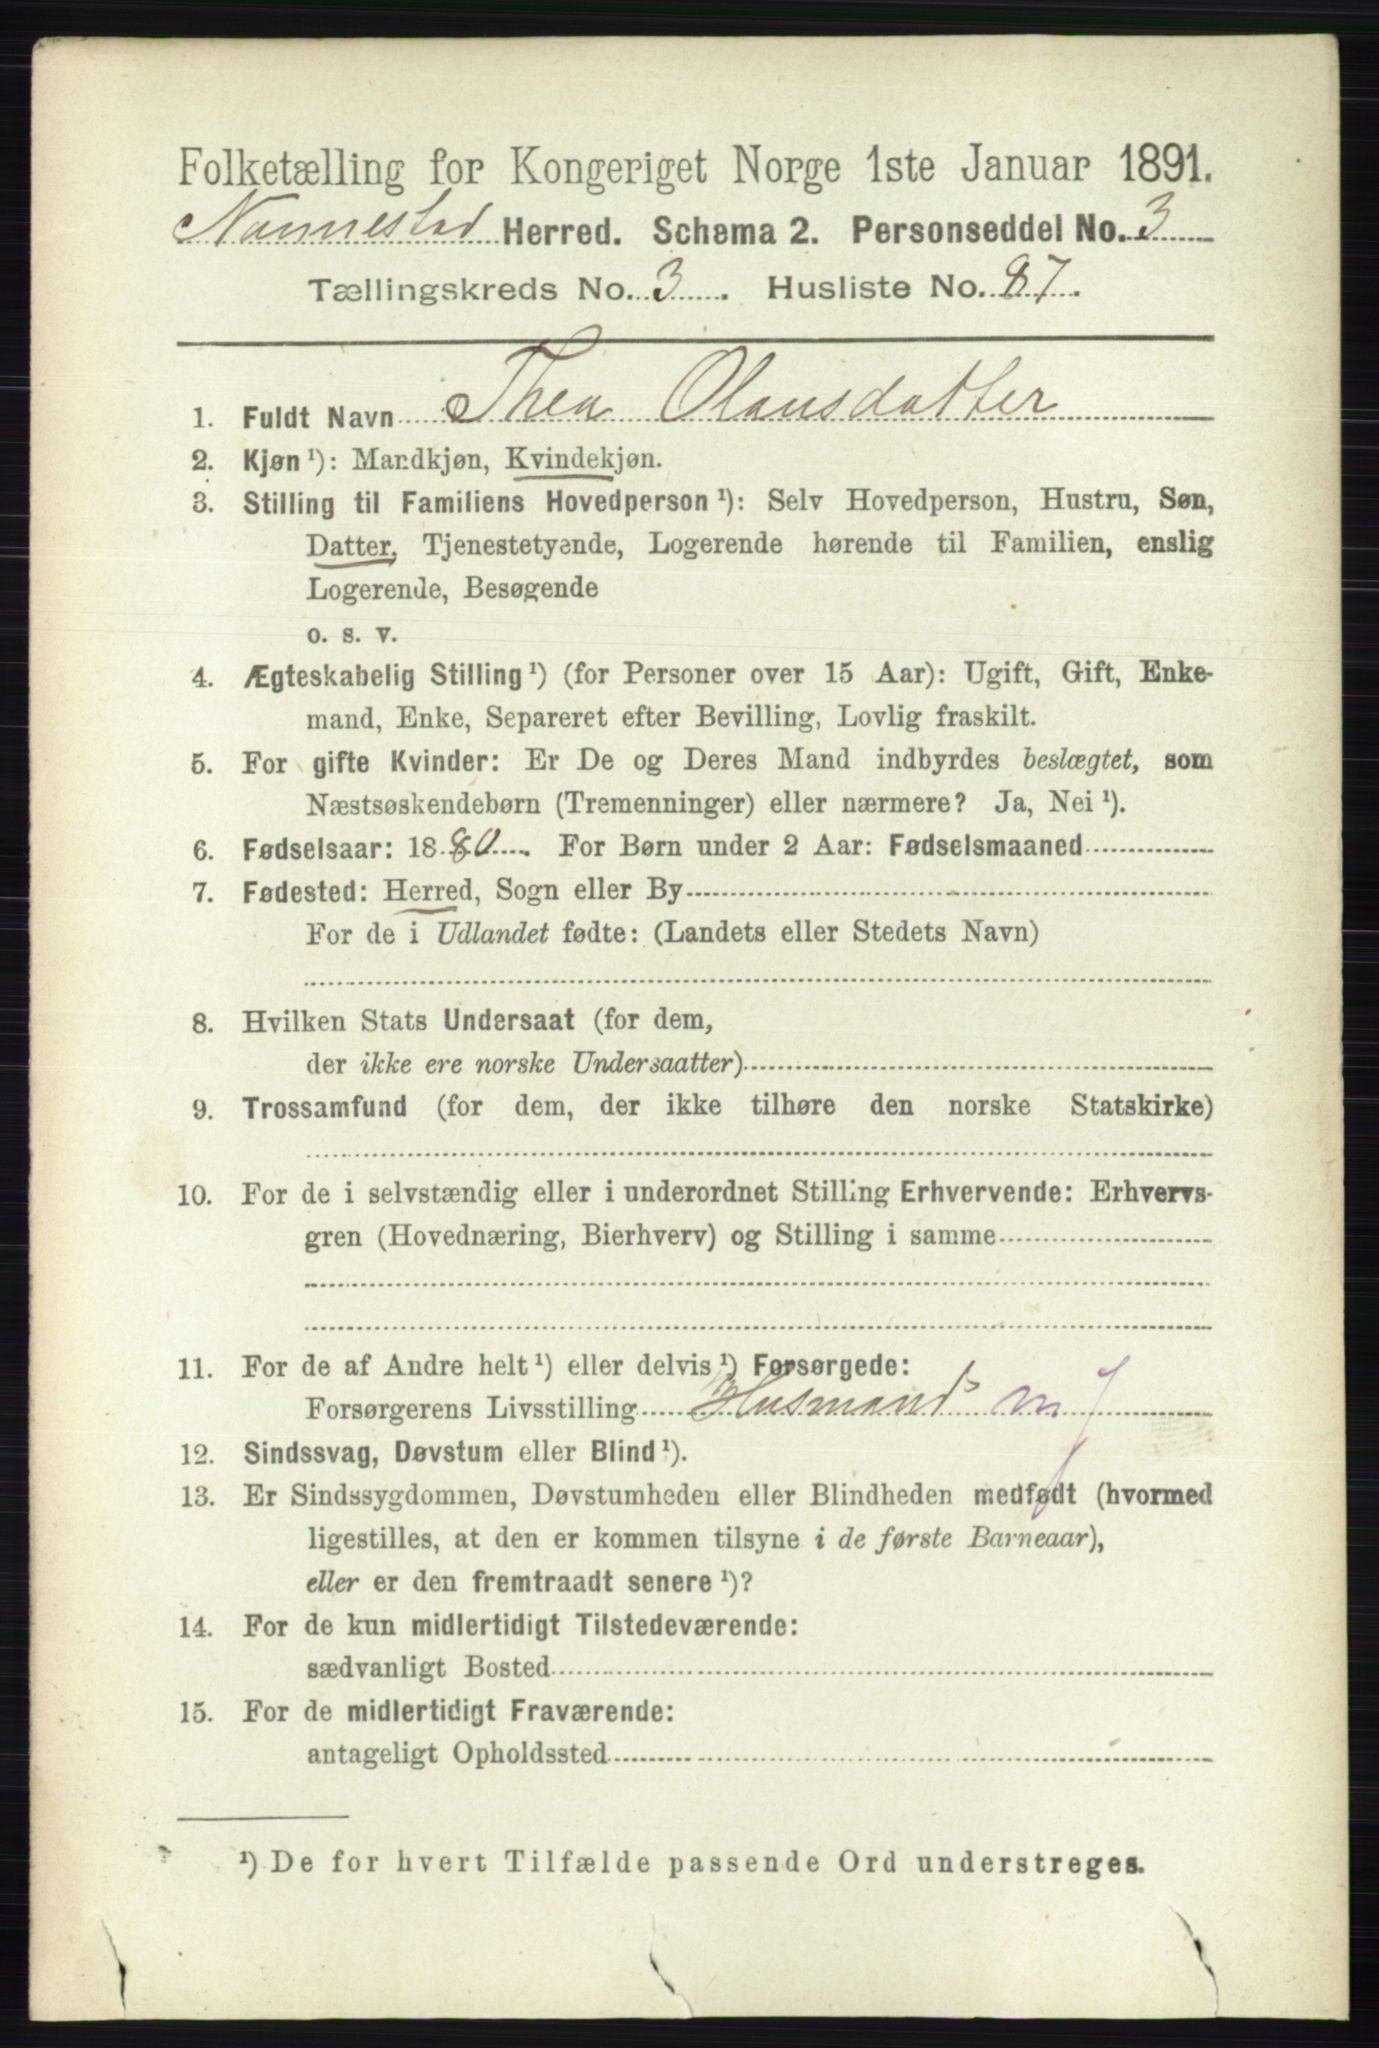 Folketælling for Kongeriget Norge 1ste Januar 1891.
Nannestad Herred. Schema 2. Personseddel No. 3
Tællingskreds No. 3. Husliste No. 87.
1. Fuldt Navn Thea Olausdatter
2. Kjøn ¹): Mandkjøn, Kvindekjøn.
3. Stilling til Familiens Hovedperson ¹): Selv Hovedperson, Hustru, Søn,
Datter, Tjenestetyende, Logerende hørende til Familien, enslig
Logerende, Besøgende
o. s. v.
4. Ægteskabelig Stilling ¹) (for Personer over 15 Aar): Ugift, Gift, Enke-
mand, Enke, Separeret efter Bevilling, Lovlig fraskilt.
5. For gifte Kvinder: Er De og Deres Mand indbyrdes beslægtet, som
Næstsøskendebørn (Tremenninger) eller nærmere? Ja, Nei ¹).
6. Fødselsaar: 1880. For Børn under 2 Aar: Fødselsmaaned
7. Fødested: Herred, Sogn eller By
For de i Udlandet fødte: (Landets eller Stedets Navn)
8. Hvilken Stats Undersaat (for dem,
der ikke ere norske Undersaatter)
9. Trossamfund (for dem, der ikke tilhøre den norske Statskirke)
10. For de i selvstændig eller i underordnet Stilling Erhvervende: Erhvervs-
gren (Hovednæring, Bierhverv) og Stilling i samme
11. For de af Andre helt ¹) eller delvis ¹) Forsørgede:
Forsørgerens Livsstilling Husmand
12. Sindssvag, Døvstum eller Blind ¹).
13. Er Sindssygdommen, Døvstumheden eller Blindheden medfødt (hvormed
ligestilles, at den er kommen tilsyne i de første Barneaar),
eller er den fremtraadt senere ¹)?
14. For de kun midlertidigt Tilstedeværende:
sædvanligt Bosted
15. For de midlertidigt Fraværende:
antageligt Opholdssted
¹) De for hvert Tilfælde passende Ord understreges.